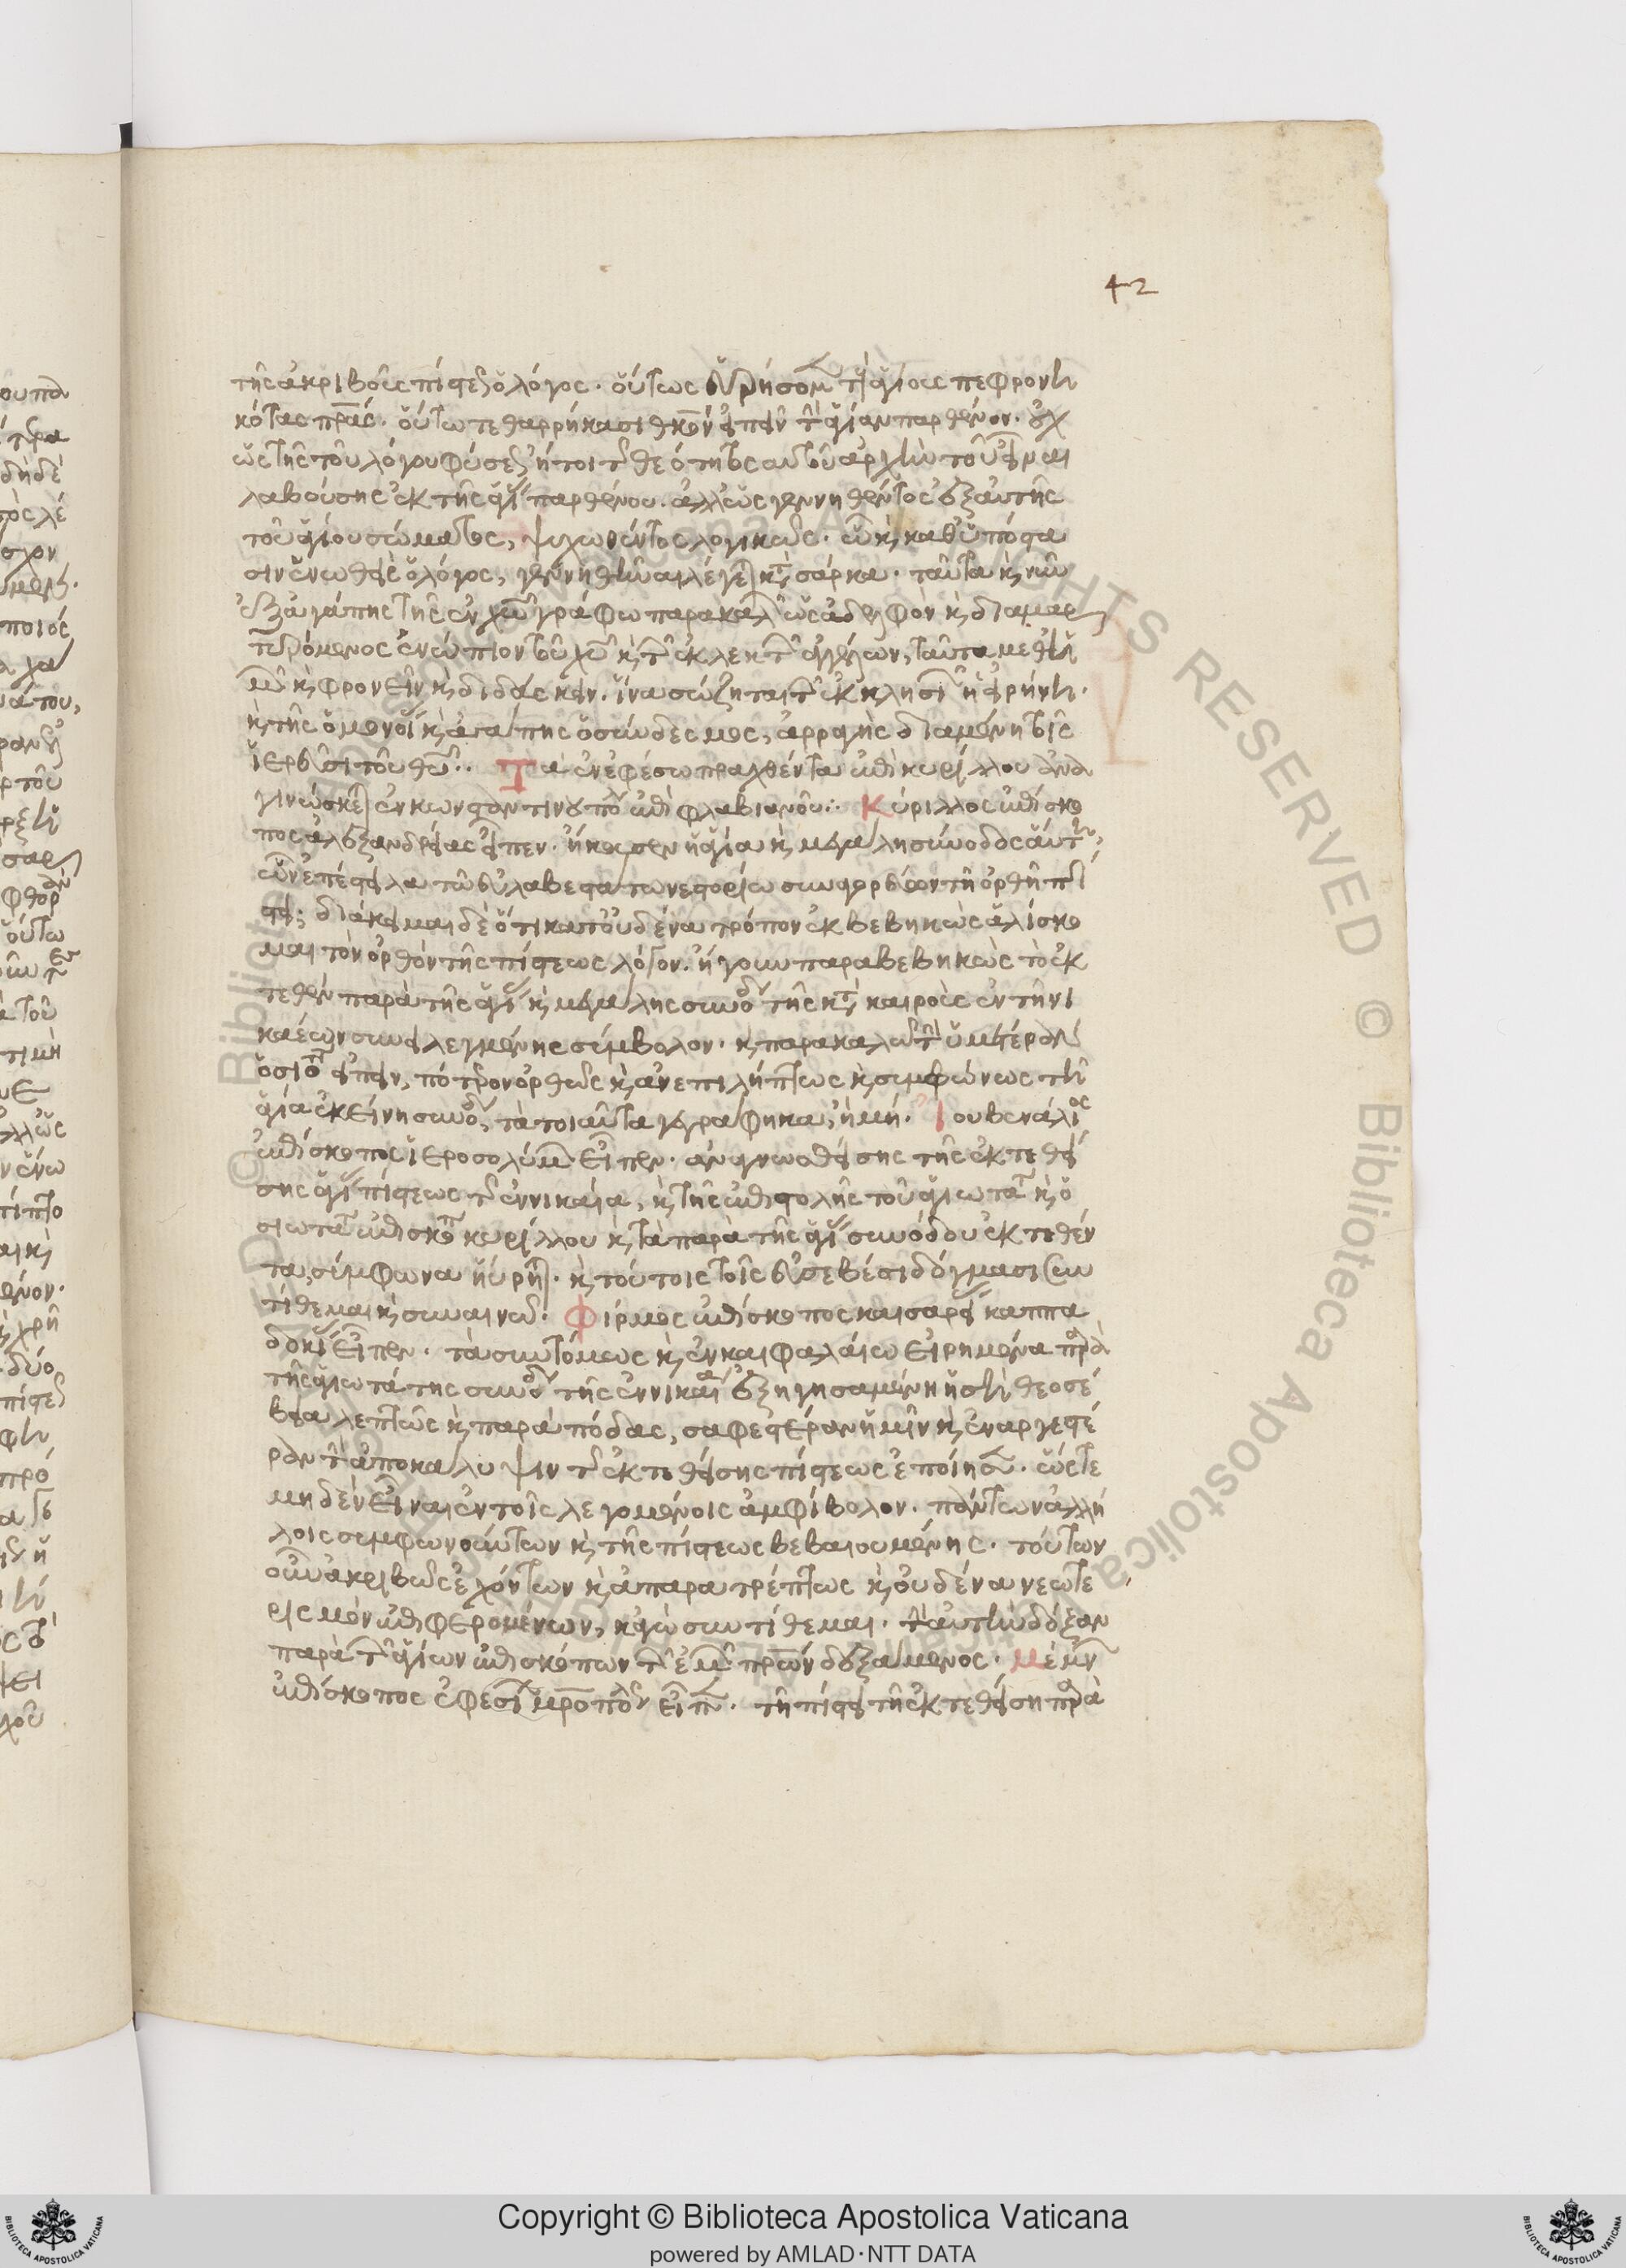 42
τῆς ἀκριβοῦς πίστεως ὁ λόγος. οὕτως εὑρήσομεν τοὺς ἁγίους πεφρονη
κότας πρας. οὕτω τεθαρρήκασι θκον εἰπεῖν τὴν ἁγίαν παρθένον. οὐχ
ὡς τῆς τοῦ λόγου φύσεως ἤτοι τῆς θεότητος αὐτοῦ ἀρχὴν τοῦ εἶναι
λαβούσης ἐκ τῆς ἁγίας παρθένου. ἀλλ' ὡς γεννηθέντος ἐξ αὐτῆς
τοῦ ἁγίου σώματος, ψυχωθέντος λογικῶς. ᾧ καὶ καθ' ὑπόστα
σιν ἑνωθεὶς ὁ λόγος, γεννηθῆναι λέγεται κατὰ σάρκα. ταῦτα καὶ νῦν
ἐξ ἀγάπης τῆς ἐν χω γράφω παρακαλῶν ὡς ἀδελφὸν καὶ διαμαρ
τυρόμενος ἐνώπιον τοῦ χυ καὶ τῶν ἐκλεκτῶν ἀγγέλων, ταῦτα μεθ' ἡ
μῶν καὶ φρονεῖν καὶ διδάσκειν. ἵνα σώζηται τῶν ἐκκλησιῶν ἡ εἰρήνη.
καὶ τῆς ὁμονοίας καὶ ἀγάπης ὁ σύνδεσμος, ἀρραγὴς διαμένη τοῖς
ἱερεῦσι τοῦ θυ. Τὰ ἐν ἐφέσω πραχθέντα ἐπὶ κυρίλλου ἀνα
γινώσκεται ἐν κωνσταντινουπόλει ἐπὶ φλαβιανοῦ. Κύριλλος ἐπίσκο
πος ἀλεξανδρείας εἶπεν. ἤκουσεν ἡ ἁγία καὶ μεγάλη σύνοδος αὕτη,
ὧν ἐπέστειλα τῶ εὐλαβεστάτω νεστορίω συνηγορεύων τῆ ὀρθῆ πί
στει. διάκειμαι δὲ ὅτι κατ' οὐδένα τρόπον ἐκβεβηκὼς ἁλίσκο
μαι τὸν ὀρθὸν τῆς πίστεως λόγον. ἤγουν παραβεβηκὼς τὸ ἐκ
τεθὲν παρὰ τῆς ἁγίας καὶ μεγάλης συνόδου τῆς κατὰ καιροὺς ἐν τῆ νι
καέων συνειλεγμένης σύμβολον. καὶ παρακαλῶ τὴν ὑμετέραν
ὁσιότητα εἰπεῖν, πότερον ὀρθῶς καὶ ἀνεπιλήπτως καὶ συμφώνως τῆ
ἁγία ἐκείνη συνόδω, τὰ τοιαῦτα γεγράφηκα, ἢ μή. Ἰουβενάλιος
ἐπίσκοπος ἱεροσολύμων εἶπεν. ἀναγνωσθείσης τῆς ἐκτεθεί
σης ἁγίας πίστεως τῆς ἐν νικαία, καὶ τῆς ἐπιστολῆς τοῦ ἁγιωτάτου καὶ ὁ
σιωτάτου ἐπισκόπου κυρίλλου καὶ τὰ παρὰ τῆς ἁγίας συνόδου ἐκτεθέν
τα, σύμφωνα ηὑρῆσθαι. καὶ τούτοις τοῖς εὐσεβέσι δόγμασι συν
τίθεμαι καὶ συναινῶ. Φίρμος ἐπίσκοπος καισαρείας καππα
δοκίας εἶπεν. τὰ συντόμως καὶ ἐν καιφαλαίω εἰρημένα παρὰ
τῆς ἁγιωτάτης συνόδου τῆς ἐν νικαία ἐξηγησαμένη ἡ σὴ θεοσέ
βεια λεπτῶς καὶ παρὰ πόδας, σαφεστέραν ἡμῖν καὶ ἐναργεστέ
ραν τὴν ἀποκάλυψιν τῆς ἐκτεθείσης πίστεως ἐποίησεν. ὥστε
μηδὲν εἶναι ἐν τοῖς λεγομένοις ἀμφίβολον. πάντων ἀλλή
λοις συμφωνούντων καὶ τῆς πίστεως βεβαιουμένης. τούτων
οὖν ἀκριβῶς ἐχόντων καὶ ἀπαρατρέπτως καὶ οὐδένα νεωτε
ρισμὸν ἐπιφερομένων, κἀγὼ συντίθεμαι. τὴν αὐτὴν δόξαν
παρὰ τῶν ἁγίων ἐπισκόπων τῶν ἐμῶν πρων δεξάμενος. Μέμνων
ἐπίσκοπος ἐφεσίων μητροπόλεως εἶπεν. τῆ πίστει τῆ ἐκτεθείση παρὰ
Copyright © Biblioteca Apostolica Vaticana
powered by AMLAD·NTT DATA